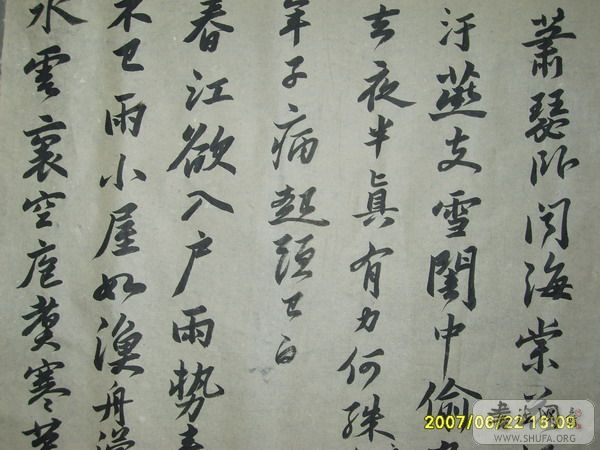 蕭瑟卧闻海棠
汙燕支雪閨中偷
去夜半真有力何殊
年子病起頭已白
春江欲入户雨勢来
不已雨小屋如漁舟濛
水雲裏空庖煮寒菜
2007/06/22
WWW.SHUFA.ORG